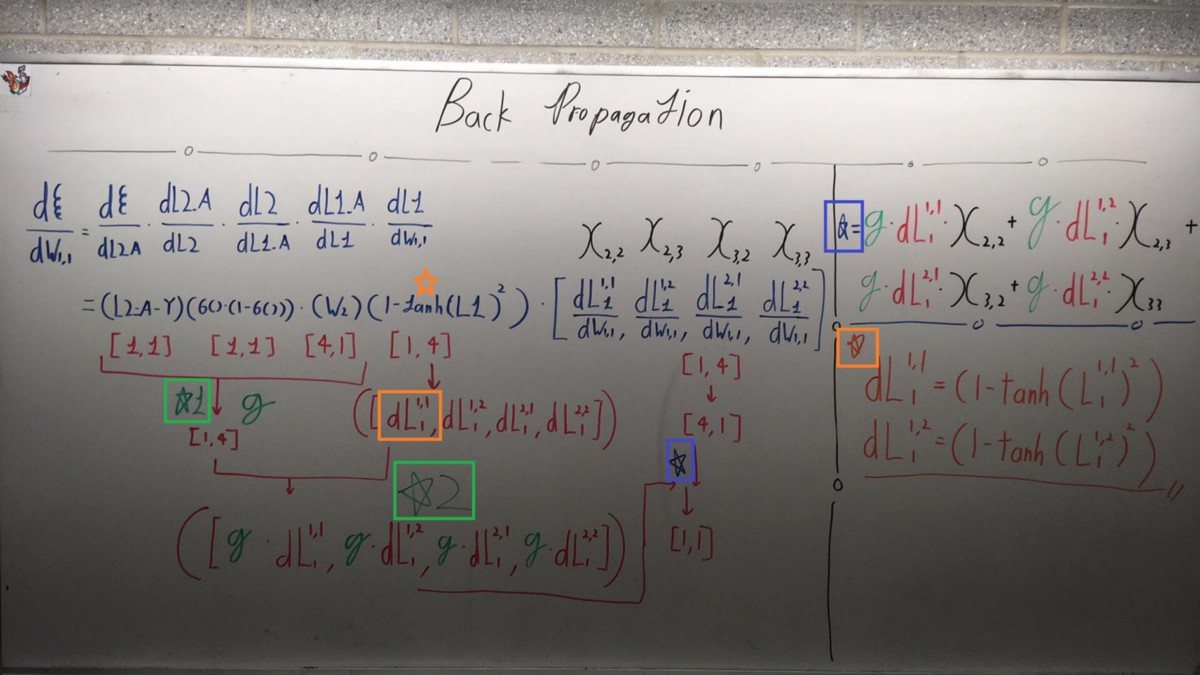 Back Propagation
dε/dW₁,₁ = dε/dL2A · dL2.A/dL2 · dL2/dL1.A · dL1.A/dL1 · dL1/dW₁,₁
X₂,₂ X₂,₃ X₃,₂ X₃,₃
= (L2.A-Y)(6()·(1-6())) · (W₂)(1-tanh(L1)²) · [dL₁¹,¹/dW₁,₁, dL₁¹,²/dW₁,₁, dL₁²,¹/dW₁,₁, dL₁²,²/dW₁,₁]
[1,1] [1,1] [4,1] [1,4]
[1,4]
☆1 g
([dL₁¹,¹, dL₁¹,², dL₁²,¹, dL₁²,²])
[1,4]
[4,1]
☆2
☆
([g·dL₁¹,¹, g·dL₁¹,², g·dL₁²,¹, g·dL₁²,²])
[1,1]
☆= g·dL₁¹,¹·X₂,₂ + g·dL₁¹,²·X₂,₃ +
g·dL₁²,¹·X₃,₂ + g·dL₁²,²·X₃₃
☆
dL₁¹,¹ = (1-tanh(L₁¹,¹)²)
dL₁¹,² = (1-tanh(L₁¹,²)²)